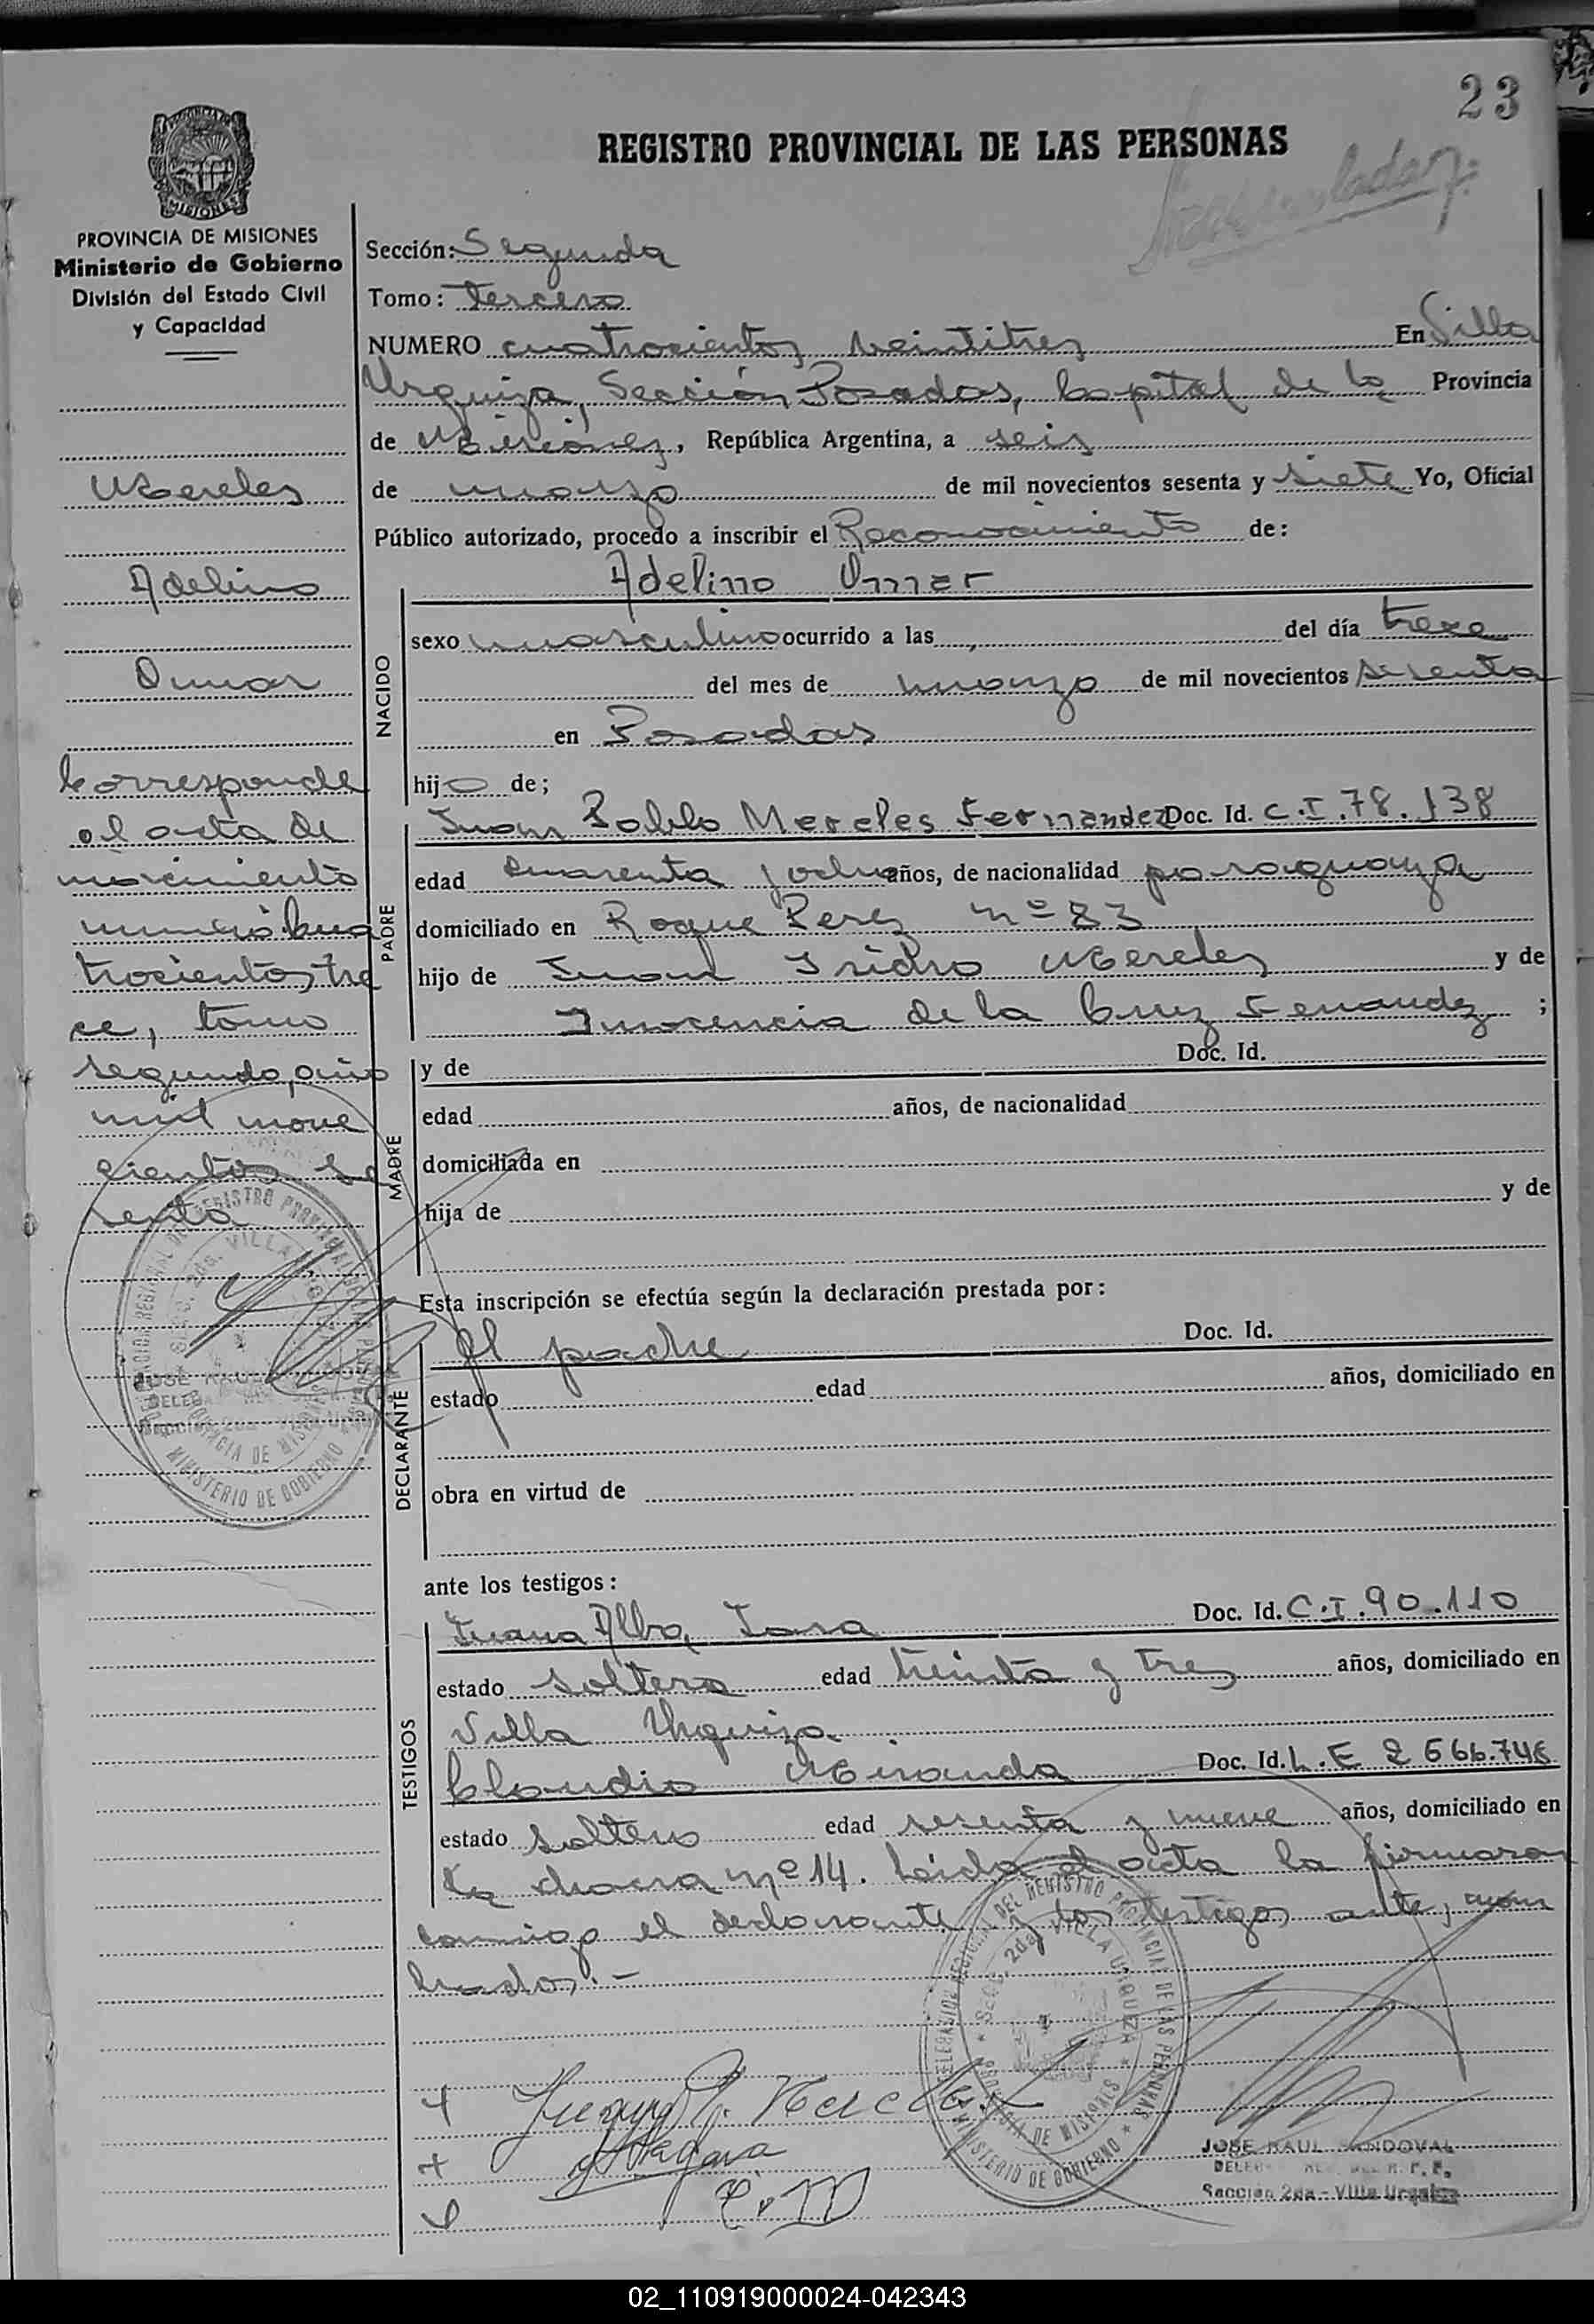 23
REGISTRO PROVINCIAL DE LAS PERSONAS
PROVINCIA DE MISIONES
Ministerio de Gobierno
División del Estado Civil
y Capacidad
Mereles
Adelino
Omar
Corresponde
al acta de
nacimiento
número cua
trocientos tre
ce, tomo
segundo, año
mil nove
cientos se
senta
Sección: Segunda
Tomo: Tercero
NUMERO cuatrocientos veintitres En Villa
Urquiza, Sección Posadas, Capital de la Provincia
de Misiones, República Argentina, a seis
de marzo de mil novecientos sesenta y siete Yo, Oficial
Público autorizado, procedo a inscribir el Reconocimiento de:
NACIDO
Adelino Omar
sexo masculino ocurrido a las del día trece
del mes de marzo de mil novecientos sesenta
en Posadas
hijo de;
PADRE
Juan Pablo Mereles Fernandez Doc. Id. C.I.78.138
edad cuarenta y ocho años, de nacionalidad paraguaya
domiciliado en Roque Perez nº 83
hijo de Juan Isidro Mereles y de
Inocencia de la Cruz Fernandez ;
MADRE
y de Doc. Id.
edad años, de nacionalidad
domiciliada en
hija de y de
Esta inscripción se efectúa según la declaración prestada por:
DECLARANTE
el padre Doc. Id.
estado edad años, domiciliado en
obra en virtud de
ante los testigos:
TESTIGOS
Juana Alba Jara Doc. Id. C.I.90.110
estado soltera edad treinta y tres años, domiciliado en
Villa Urquiza
Claudio Miranda Doc. Id. L.E 2 566.746
estado soltero edad sesenta y nueve años, domiciliado en
La chacra nº 14. Leida el acta la firmaron
conmigo el declarante y los testigos ante, nom
brados.-
Juan P. Mereles
C.M
DELEGACION REGIONAL DEL REGISTRO PROVINCIAL DE LAS PERSONAS
SECC. 2da. VILLA URQUIZA
PROVINCIA DE MISIONES
MINISTERIO DE GOBIERNO
JOSE RAUL SANDOVAL
Sección 2da - Villa Urquiza
02_110919000024-042343